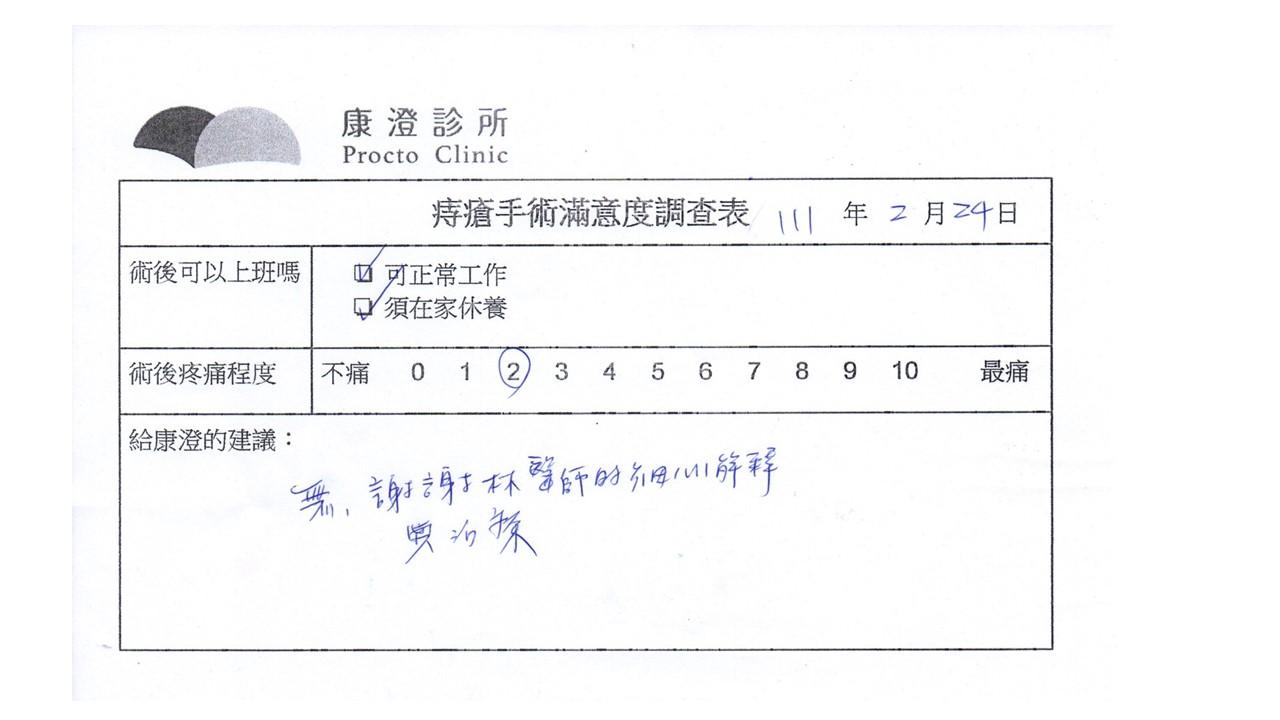 康澄診所
Procto Clinic
痔瘡手術滿意度調查表 111 年 2 月 24 日
術後可以上班嗎
可正常工作
須在家休養
術後疼痛程度 不痛 0 1 2 3 4 5 6 7 8 9 10 最痛
給康澄的建議：
無，謝謝林醫師的細心解釋
與治療